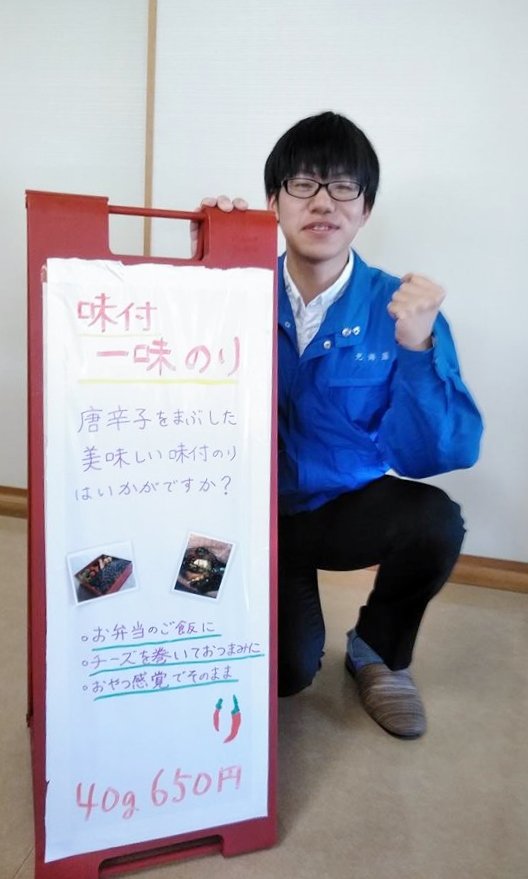 味付
一味のり
唐辛子をまぶした
美味しい味付のり
はいかがですか?
。お弁当のご飯に
。チーズを巻いておつまみに
。おやつ感覚でそのまま
40g 650円